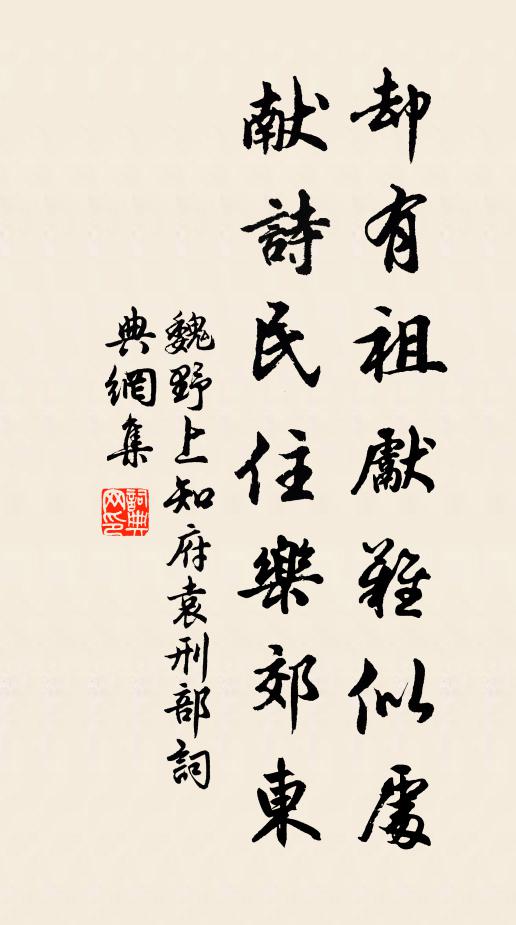 却有祖獻難似處
献詩民住樂郊東
魏野上知府袁刑部詞
典網集
詞典
网印